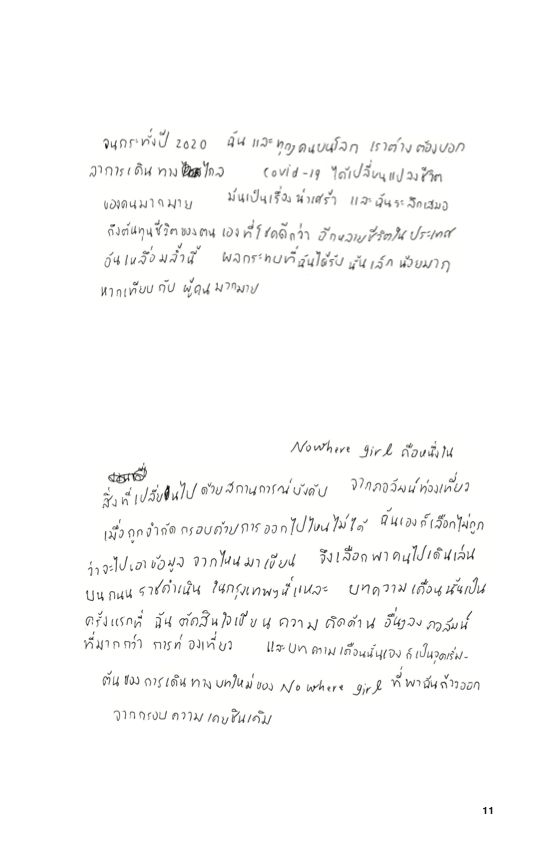 จนกระทั่งปี 2020 ฉัน และทุกๆ คนบนโลก เราต่างต้องบอก
ลาการเดินทางไกล Covid-19 ได้เปลี่ยนแปลงชีวิต
ของคนมากมาย มันเป็นเรื่องน่าเศร้า และฉันระลึกเสมอ
ถึงต้นทุนชีวิตของตนเองที่โชคดีกว่า อีกหลายชีวิตในประเทศ
อันเหลื่อมล้ำนี้ ผลกระทบที่ฉันได้รับ นั้นเล็กน้อยมาก
หากเทียบกับ ผู้คนมากมาย
Nowhere girl คือหนึ่งใน
สิ่งที่เปลี่ยนไป ด้วยสถานการณ์บังคับ จากคอลัมน์ท่องเที่ยว
เมื่อถูกจำกัดกรอบด้วยการออกไปไหนไม่ได้ ฉันเองก็เลือกไม่ถูก
ว่าจะไปเอาข้อมูล จากไหนมาเขียน จึงเลือกพาคนไปเดินเล่น
บนถนน ราชดำเนิน ในกรุงเทพฯนี่แหละ บทความเดือนนั้นเป็น
ครั้งแรกที่ ฉัน ตัดสินใจเขียน ความคิดด้าน อื่นๆลงคอลัมน์
ที่มากกว่า การท่องเที่ยว และบทความเดือนนั้นเอง ก็เป็นจุดเริ่ม-
ต้นของการเดินทางบทใหม่ของ Nowhere girl ที่พาฉันก้าวออก
จากกรอบความเคยชินเดิม
11